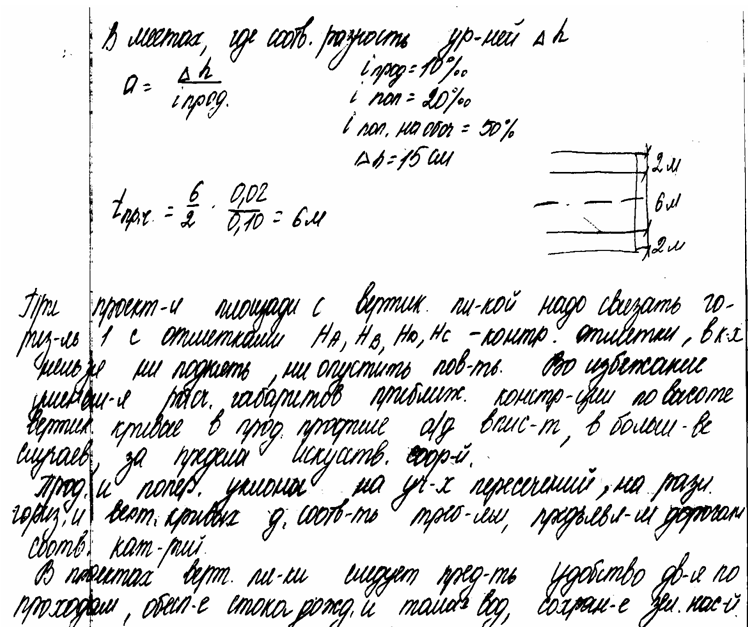 В местах, где соотв. разность ур-ней Δh
a = Δh / i прод.
i прод = 10‰
i поп = 20‰
i поп. на обоч = 50%
Δh = 15 см
2 м
6 м
2 м
= 6/2 · 0,02/0,10 = 6 м
При проект-и площади с вертик. пл-кой надо связать го-
риз-ль 1 с отметками HA, HB, HD, HC - контр. отметки, в к-х
нельзя ни поднять, ни опустить пов-ть. Во избежание
габаритов приближ. констр-ции по высоте
вертик. кривые в прод. профиле а/д впис-т, в больш-ве
случаев, за пределы искусств. соор-й.
Прод. и попер. уклоны на уч-х пересечений, на разн.
гориз. и верт. кривых д. соотв-ть треб-ям, предъявл-м дорогам
соотв. кат-рий.
В проектах верт. пл-ки следует пред-ть удобство дв-я по
проходам, обесп-е стока дожд. и талых вод, сохран-е зел. нас-й